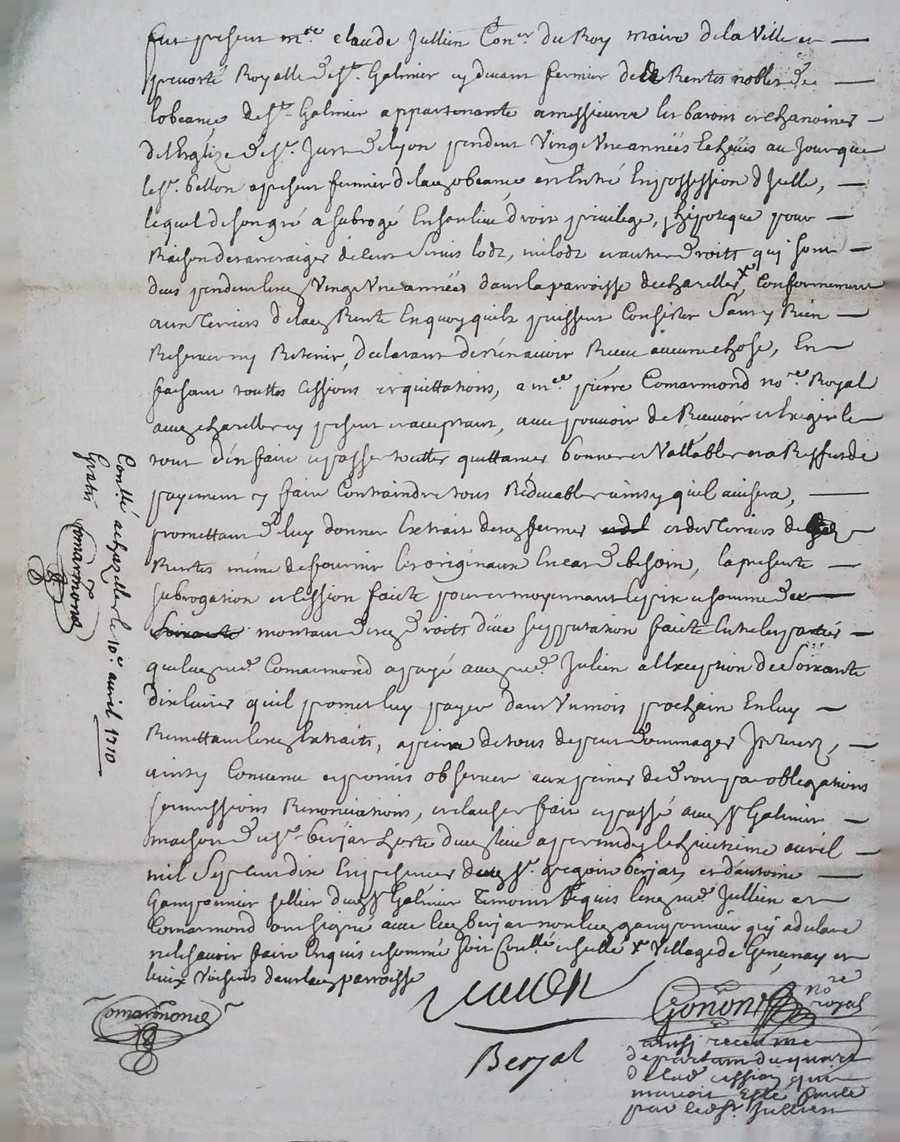 fut present me claude Jullien Coner du Roy maire de la Ville et
prevosté Royalle de St. Galmier cy devant fermier de la Rentes nobles de
lobeance de St. Galmier appartenante a messieurs les barons et chanoines
de l'Eglize de St. Just de lyon pendent Vingt Une années Echeües au Jour que
le Sr. bellon a present fermier de lad obeance en Entré En possession d'Icelle,
lequel de son gré a subrogé En son lieu droit privilege, hypoteque pour
Raison des arreraiges de leur Servis lodz, milodz et autres droitts qui sont
deus pendent lesd Vingt Une années dans la parroisse de chazelles x, Conformement
aux terriers de lad Rente En quoy quils puissent Consister Sans y Rien
Reserver ny Retenir, declarant de n'en avoir Receu aucune chose, En
faisant touttes cessions et quittations, a me pierre Comarmond nore Royal
aud chazelles cy present et acceptant, avec pouvoir de Recevoir et Exiger le
tout d'en faire et passer touttes quittances bonnes et Vallables et a Reffus de
payement y faire Contraindre tous Redevables ainsy quil avisera,
promettant de luy donner Extrait desd fermes et des terriers de
Rentes même de fournir les originaux En cas de besoin, la presente
subrogation et Cession faitte pour et moyennant le prix et somme de
montant desd droits d'une supputation faitte Entre les parties
que led me Comarmond a payé aud me Jullien a l'Exception de Soixante
dix livres quil promet luy payer dans Un mois prochain En luy
Remettant lesd Extraits, a peine de tous depens dommages Interez,
ainsy Convenu et promis observer aux peines de droit par obligations
soumissions Renonciations, et clauses fait et passé aud St Galmier
maison de Sr. berjat hoste dud lieu apres midy le huitieme avril
mil Sept cent dix En presence dud Sr. gregoire berjat, et d'antoine
Gamponnier sellier dud St Galmier temoins Requis lesd me Jullien et
Comarmond ont signé avec led berjat non led gamponnier qui a declaré
ne le scavoir faire Enquis et sommé Soit Conllé et scellé x Village de et
lieux Voisins dans lad parroisse
Conllé a chazelles le 10e avril 1710
Gratis
Comarmond
Comarmond
Jullien
Gononet nore royal
Berjat
ainsy receu me
departant du quart
de lad cession qui
mavoit esté faitte
par led Sr Jullien